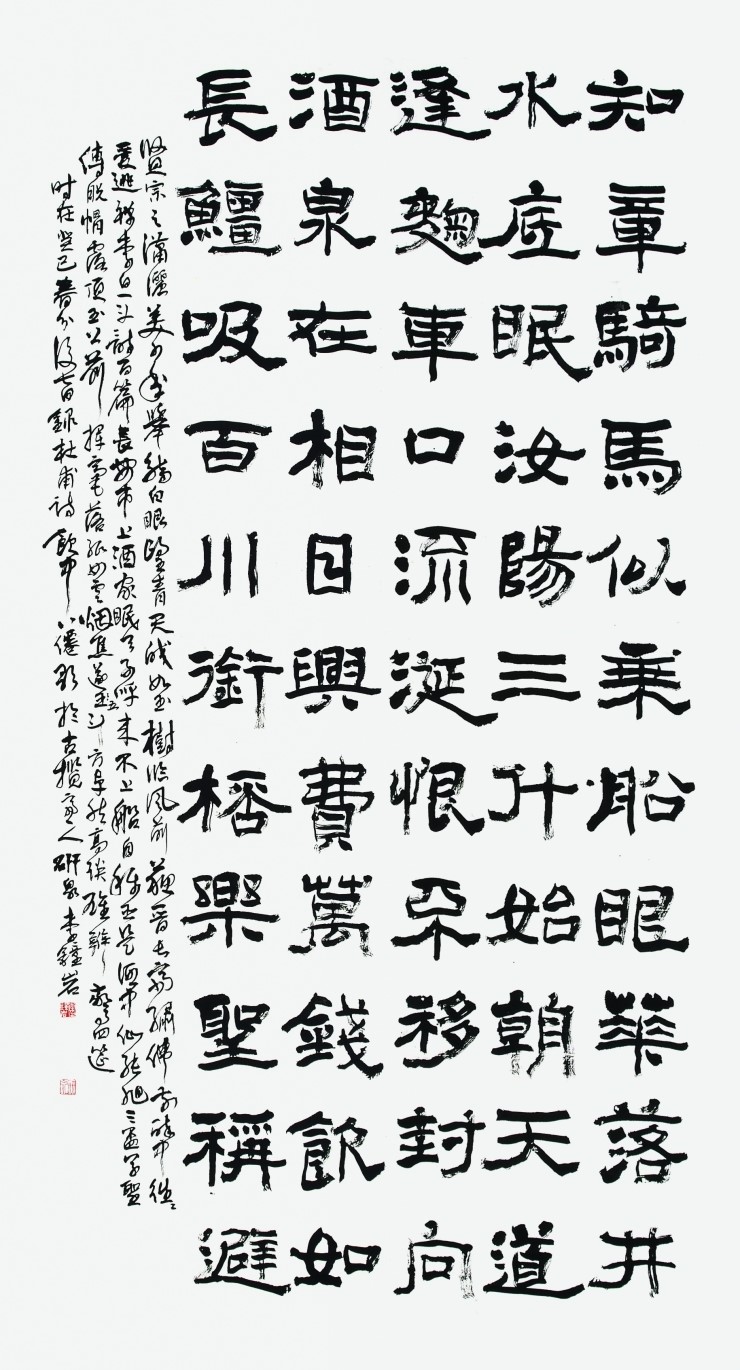 知章騎馬似乘船眼華落井
水底眠汝陽三斗始朝天道
逢麴車口流涎恨不移封向
酒泉在相日興費萬錢飲如
長䲔吸百川銜桮樂聖稱避
賢宗之瀟灑美少年舉觴白眼望青天皎如玉樹臨風前蘇晉長齋繡佛前醉中往往
愛逃禪李白一斗詩百篇長安市上酒家眠天子呼來不上船自稱臣是酒中仙張旭三盃草聖
傳脫帽露頂王公前揮毫落紙如雲烟焦遂五斗方卓然高談雄辯驚四筵
时在癸巳春分後日錄杜甫詩飲中八僊歌於古人研泉李鐘岩